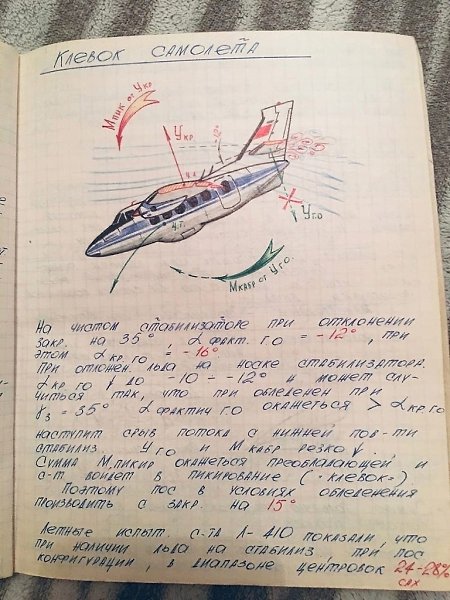 Клевок самолета
М пик от Yкр.
Yкр.
ц.т.
Yг.о
М кабр от Yго.
На чистом стабилизаторе при отклонении
закр. на 35°, α факт. го = -12°, при
этом α кр. го = -16°.
При отложен. льда на носке стабилизатора.
α кр. го ↓ до -10 - -12° и может слу-
читься так, что при обледенен при
γз = 35° α фактич го окажеться > α кр. го
наступит срыв потока с нижней пов-ти
стабилиз Yго и М кабр. резко ↓.
Сумма М пикир окажеться преобладающей и
с-т войдет в пикирование (·клевок=)
Поэтому пос в условиях обледенения
производить с закр. на 15°
Летные испыт. с-та Л-410 показали, что
при наличии льда на стабилиз, при пос
конфигурации, в диапазоне центровок 24-28%
сах